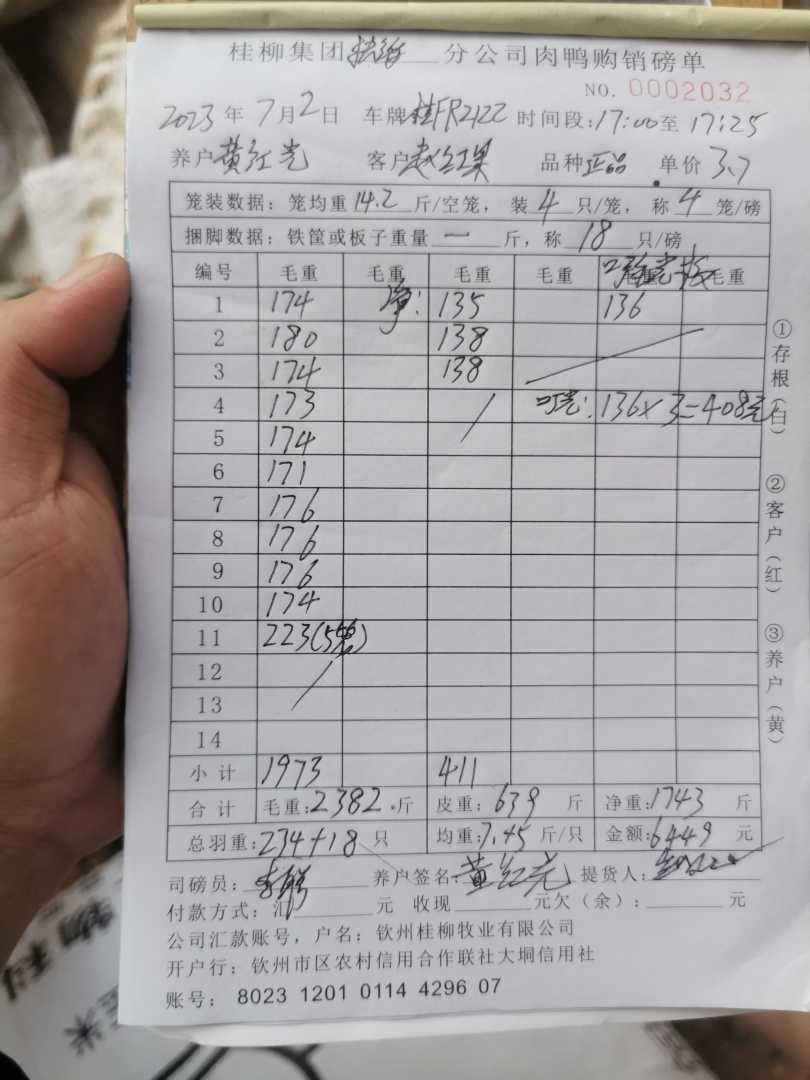 桂柳集团 分公司肉鸭购销磅单
NO. 0002032
2023年7月2日 车牌桂FR2122 时间段:17:00至17:25
养户黄红光 客户赵红果 品种正品 单价3.7
笼装数据:笼均重14.2斤/空笼,装4只/笼,称4笼/磅
捆脚数据:铁筐或板子重量一斤,称18只/磅
编号 毛重 毛重 毛重 毛重 毛重
1 174 净: 135 136
2 180 138
3 174 138
4 173 136×3=408元
5 174
6 171
7 176
8 176
9 176
10 174
11 223(5笼)
12
13
14
小计 1973 411
合计 毛重:2382.斤 皮重:639斤 净重:1743斤
总羽重:234+18只 均重:7.45斤/只 金额:6449元
司磅员: 养户签名:黄红光 提货人:
付款方式:汇 元 收现 元欠(余): 元
公司汇款账号,户名:钦州桂柳牧业有限公司
开户行:钦州市区农村信用合作联社大垌信用社
账号:8023 1201 0114 4296 07
①存根(白)
②客户(红)
③养户(黄)